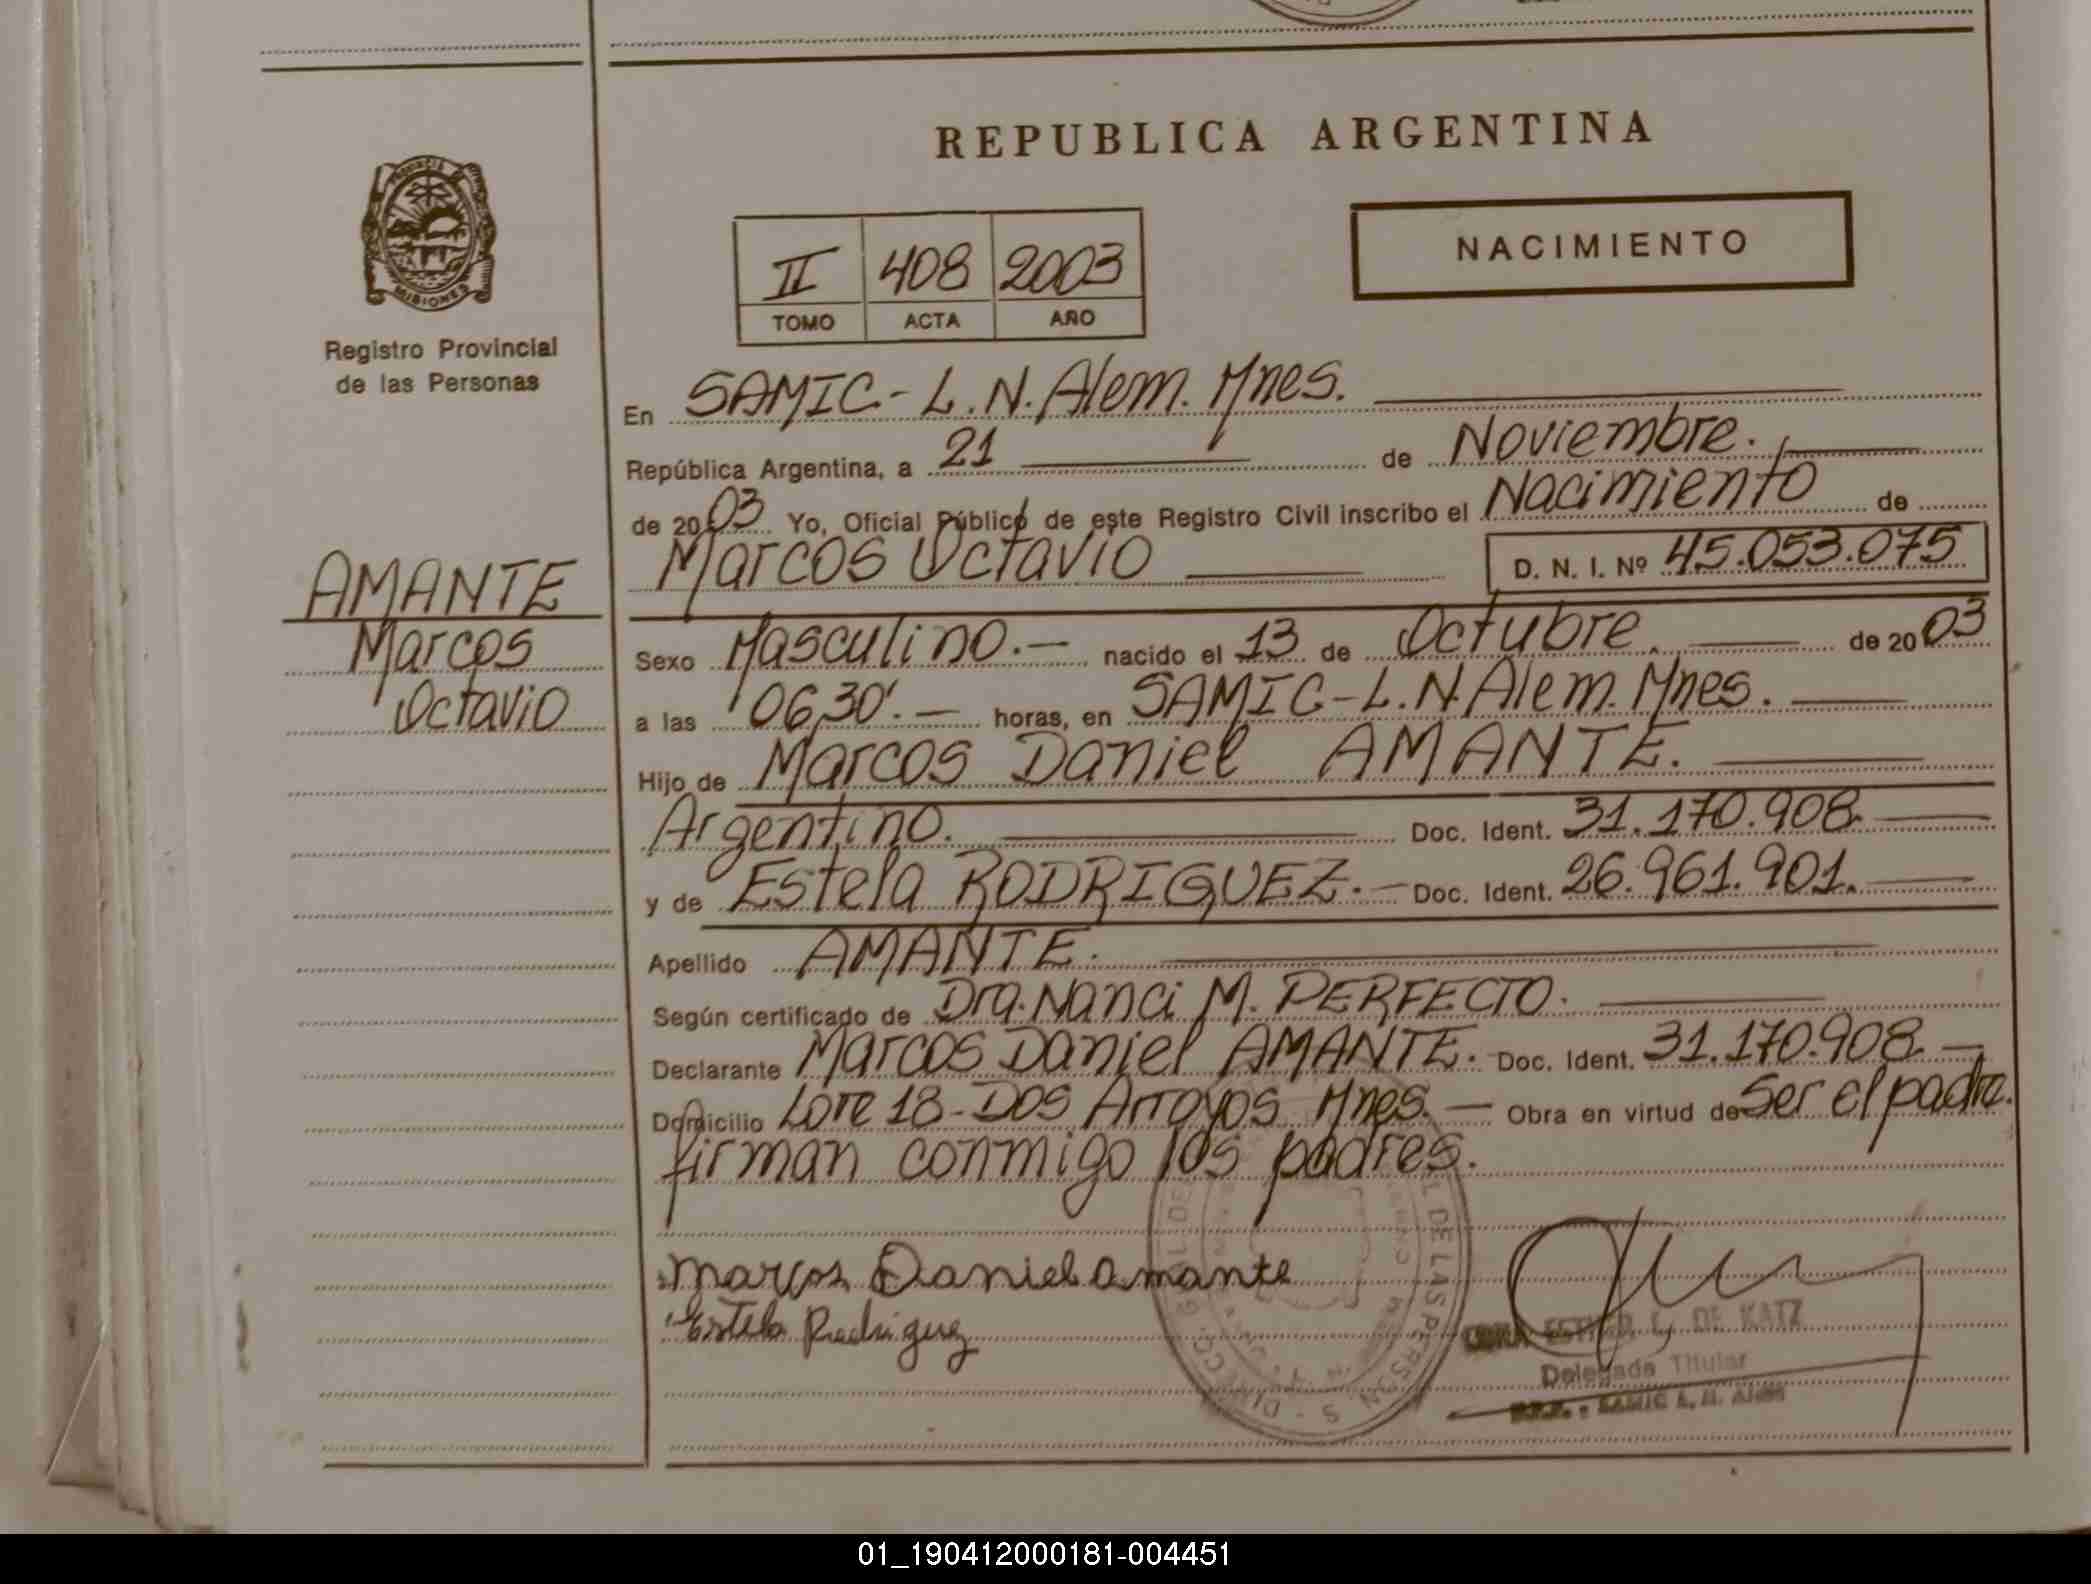 REPUBLICA ARGENTINA
PROVINCIA
MISIONES
Registro Provincial
de las Personas
II 408 2003
TOMO ACTA AÑO
NACIMIENTO
En SAMIC - L.N. Alem. Mnes.
República Argentina, a 21 de Noviembre.
de 2003 Yo, Oficial Público de este Registro Civil inscribo el Nacimiento de
Marcos Octavio D. N. I. Nº 45.053.075
AMANTE
Marcos
Octavio
Sexo Masculino.- nacido el 13 de Octubre. de 2003
a las 06,30'.- horas, en SAMIC - L.N. Alem. Mnes.
Hijo de Marcos Daniel AMANTE.
Argentino. Doc. Ident. 31.170.908.
y de Estela RODRIGUEZ.- Doc. Ident. 26.961.901.
Apellido AMANTE.
Según certificado de Dra. Nanci M. PERFECTO.
Declarante Marcos Daniel AMANTE. Doc. Ident. 31.170.908.-
Domicilio Lote 18 - Dos Arroyos Mnes.- Obra en virtud de Ser el padre.
firman conmigo los padres.
Marcos Daniel amante
Estela Rodriguez
ESTHER L. DE KATZ
Delegada Titular
SAMIC L. N. Alem
DE LAS PERSONAS
01_190412000181-004451